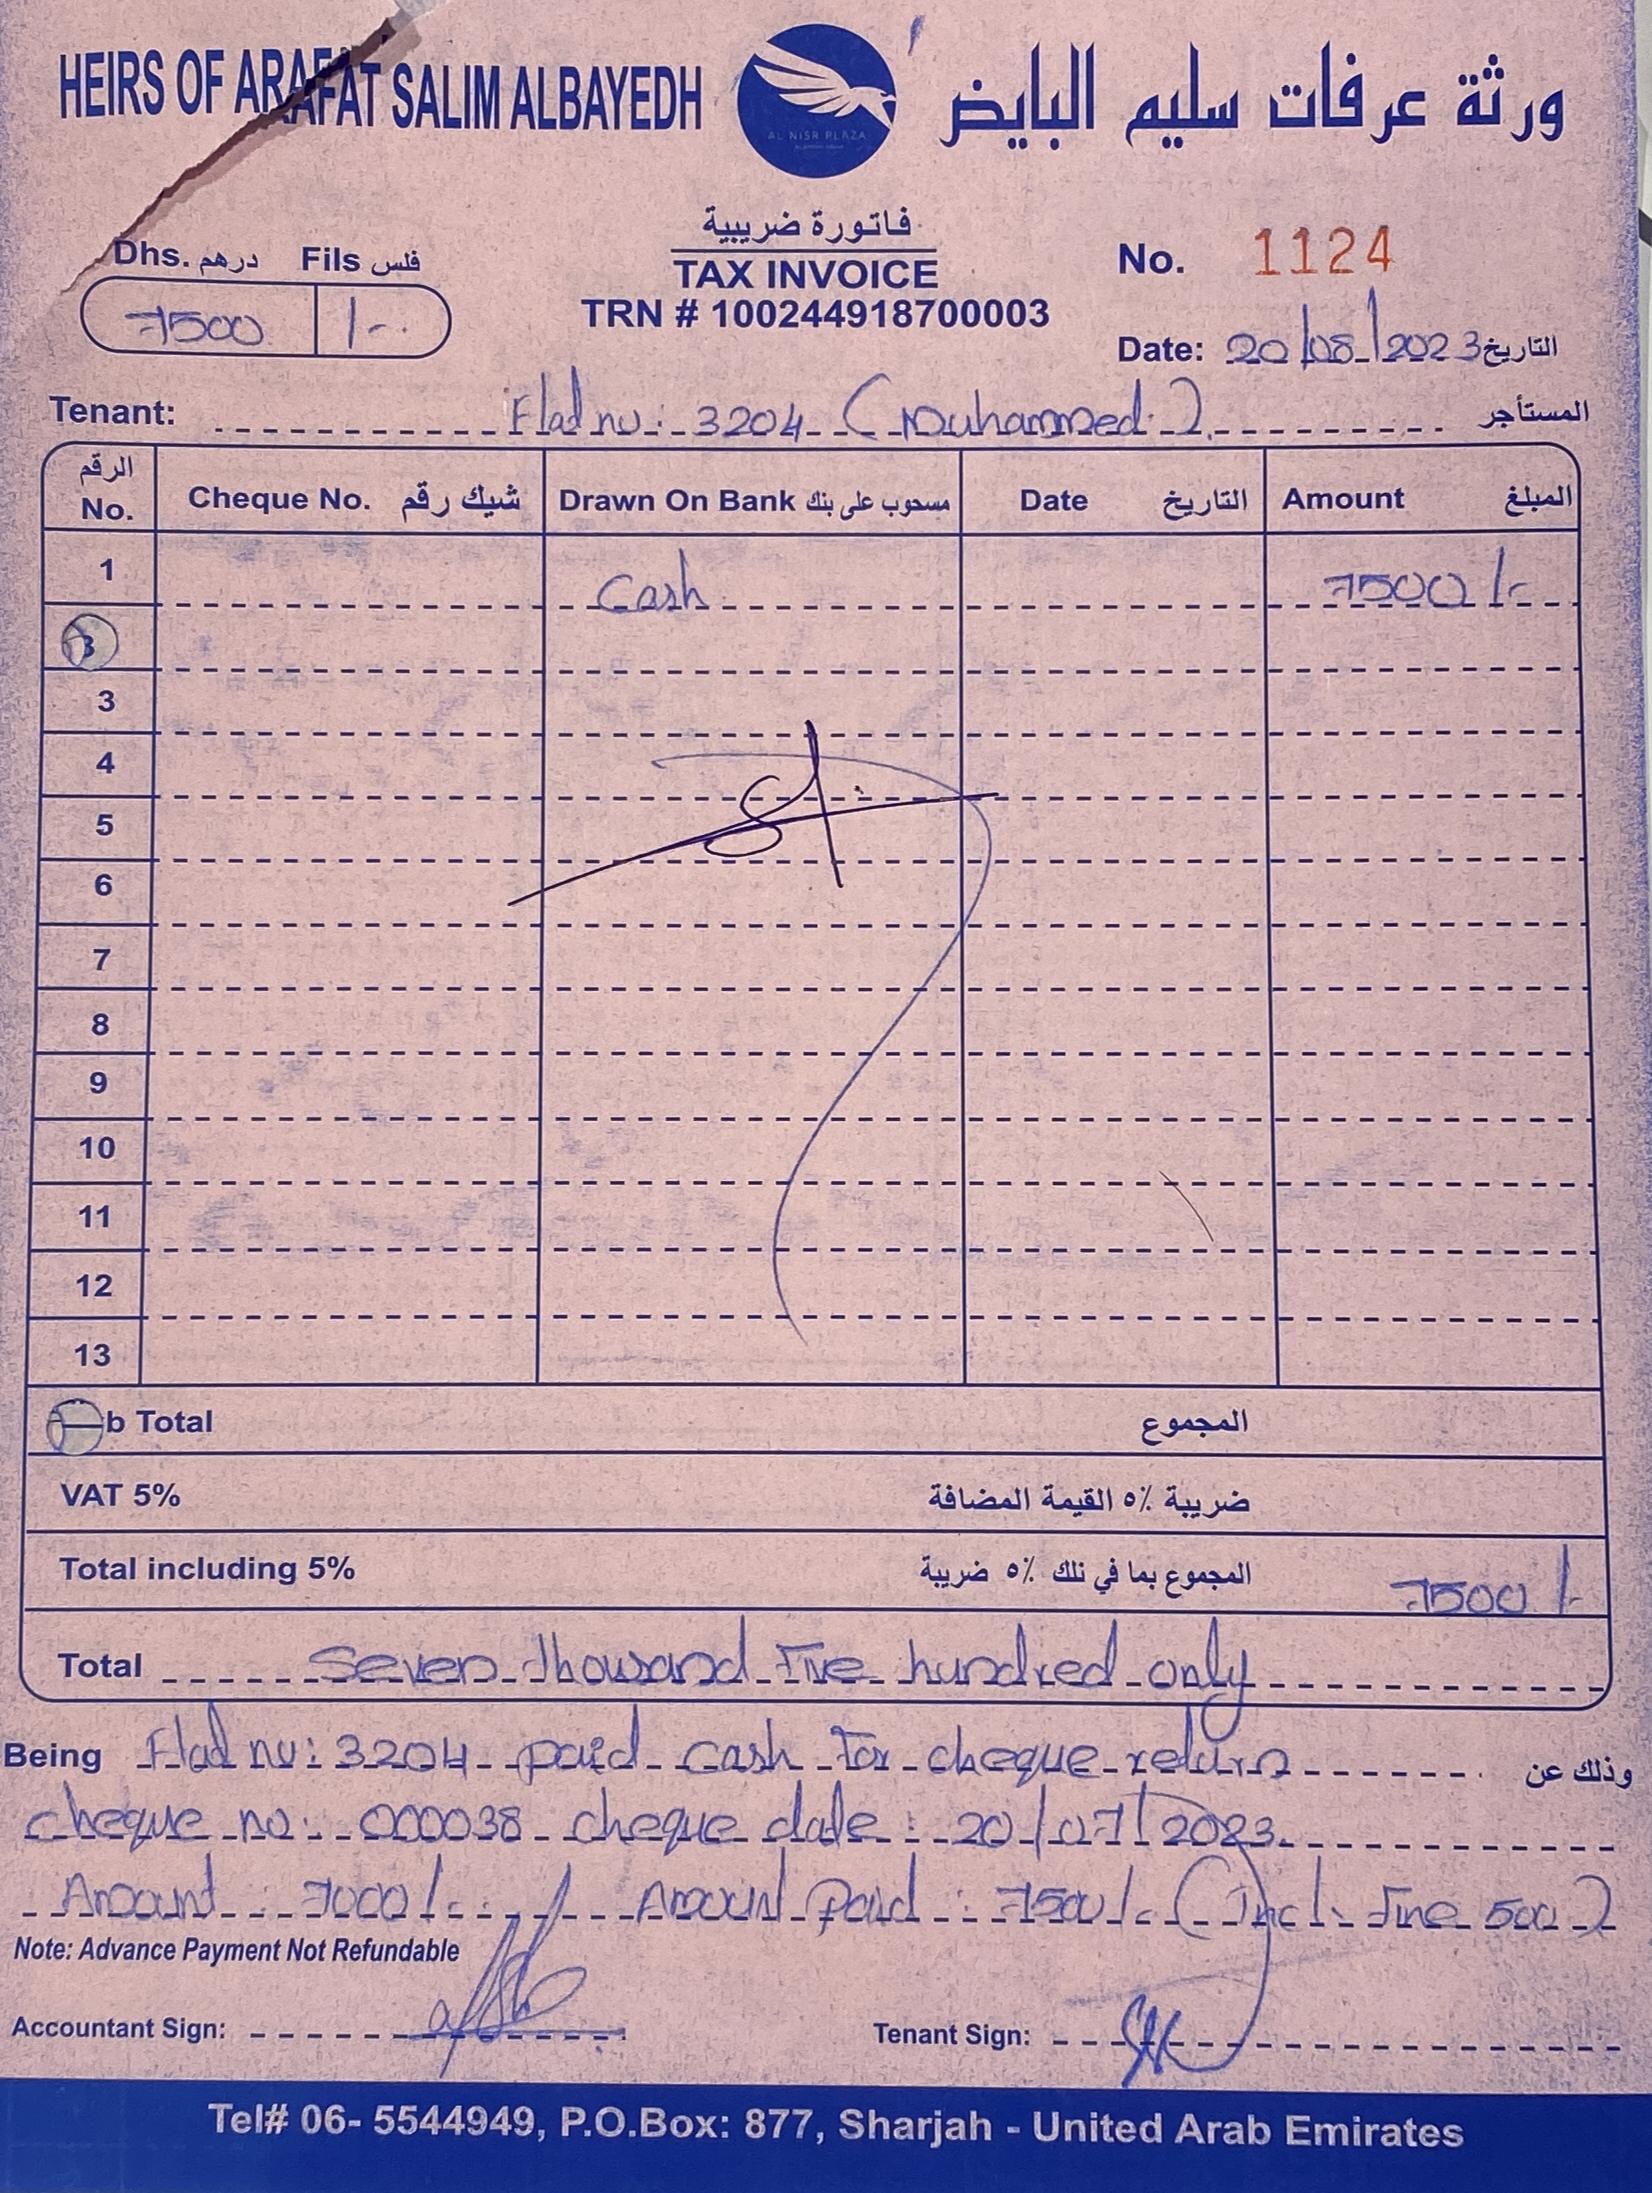 HEIRS OF ARAFAT SALIM ALBAYEDH
ورثة عرفات سليم البايض
AL NISR PLAZA
فاتورة ضريبية
TAX INVOICE
TRN # 100244918700003
Dhs. درهم Fils فلس
7500 /-
No. 1124
Date: 20/08/2023 التاريخ
Tenant: Flad no: 3204 (Muhammed) المستأجر
الرقم No. Cheque No. شيك رقم Drawn On Bank مسحوب على بنك Date التاريخ Amount المبلغ
1 Cash 7500/-
3
3
4
5
6
7
8
9
10
11
12
13
b Total المجموع
VAT 5% ضريبة ٥٪ القيمة المضافة
Total including 5% المجموع بما في تلك ٥٪ ضريبة 7500/-
Total Seven thousand Five hundred only
Being Flad no: 3204 paid cash for cheque return وذلك عن
cheque no: 000038 cheque date: 20/07/2023
Amount: 7000/- / Amount paid: 7500/- (Incl. Fine 500)
Note: Advance Payment Not Refundable
Accountant Sign: Tenant Sign:
Tel# 06- 5544949, P.O.Box: 877, Sharjah - United Arab Emirates